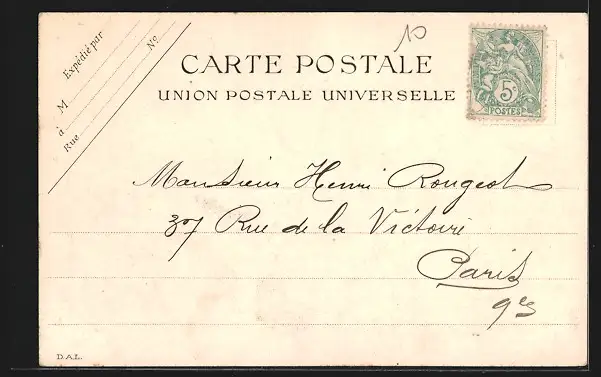 10
Expédié par
M
à
Rue
No.
CARTE POSTALE
UNION POSTALE UNIVERSELLE
5c
POSTES
Monsieur Henri Rougeot
37 Rue de la Victoire
Paris
9es
D.A.L.